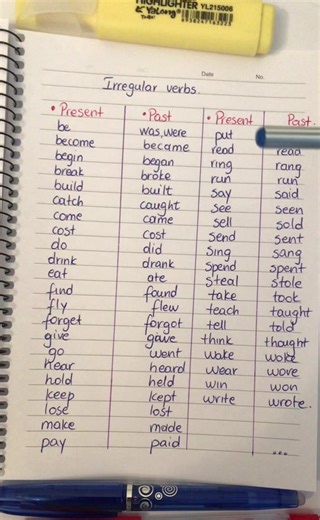 HIGHLIGHTER YL215006
YaLong
Date No.
Irregular verbs.
• Present • Past • Present Past
be was, were put
become became read read
begin began ring rang
break broke run run
build built say said
catch caught see seen
come came sell sold
cost cost send sent
do did sing sang
drink drank spend spent
eat ate steal stole
find found take took
fly flew teach taught
forget forgot tell told
give gave think thaught
go went wake woke
hear heard wear wove
hold held win won
keep kept write wrote.
lose lost
make made
pay paid ...